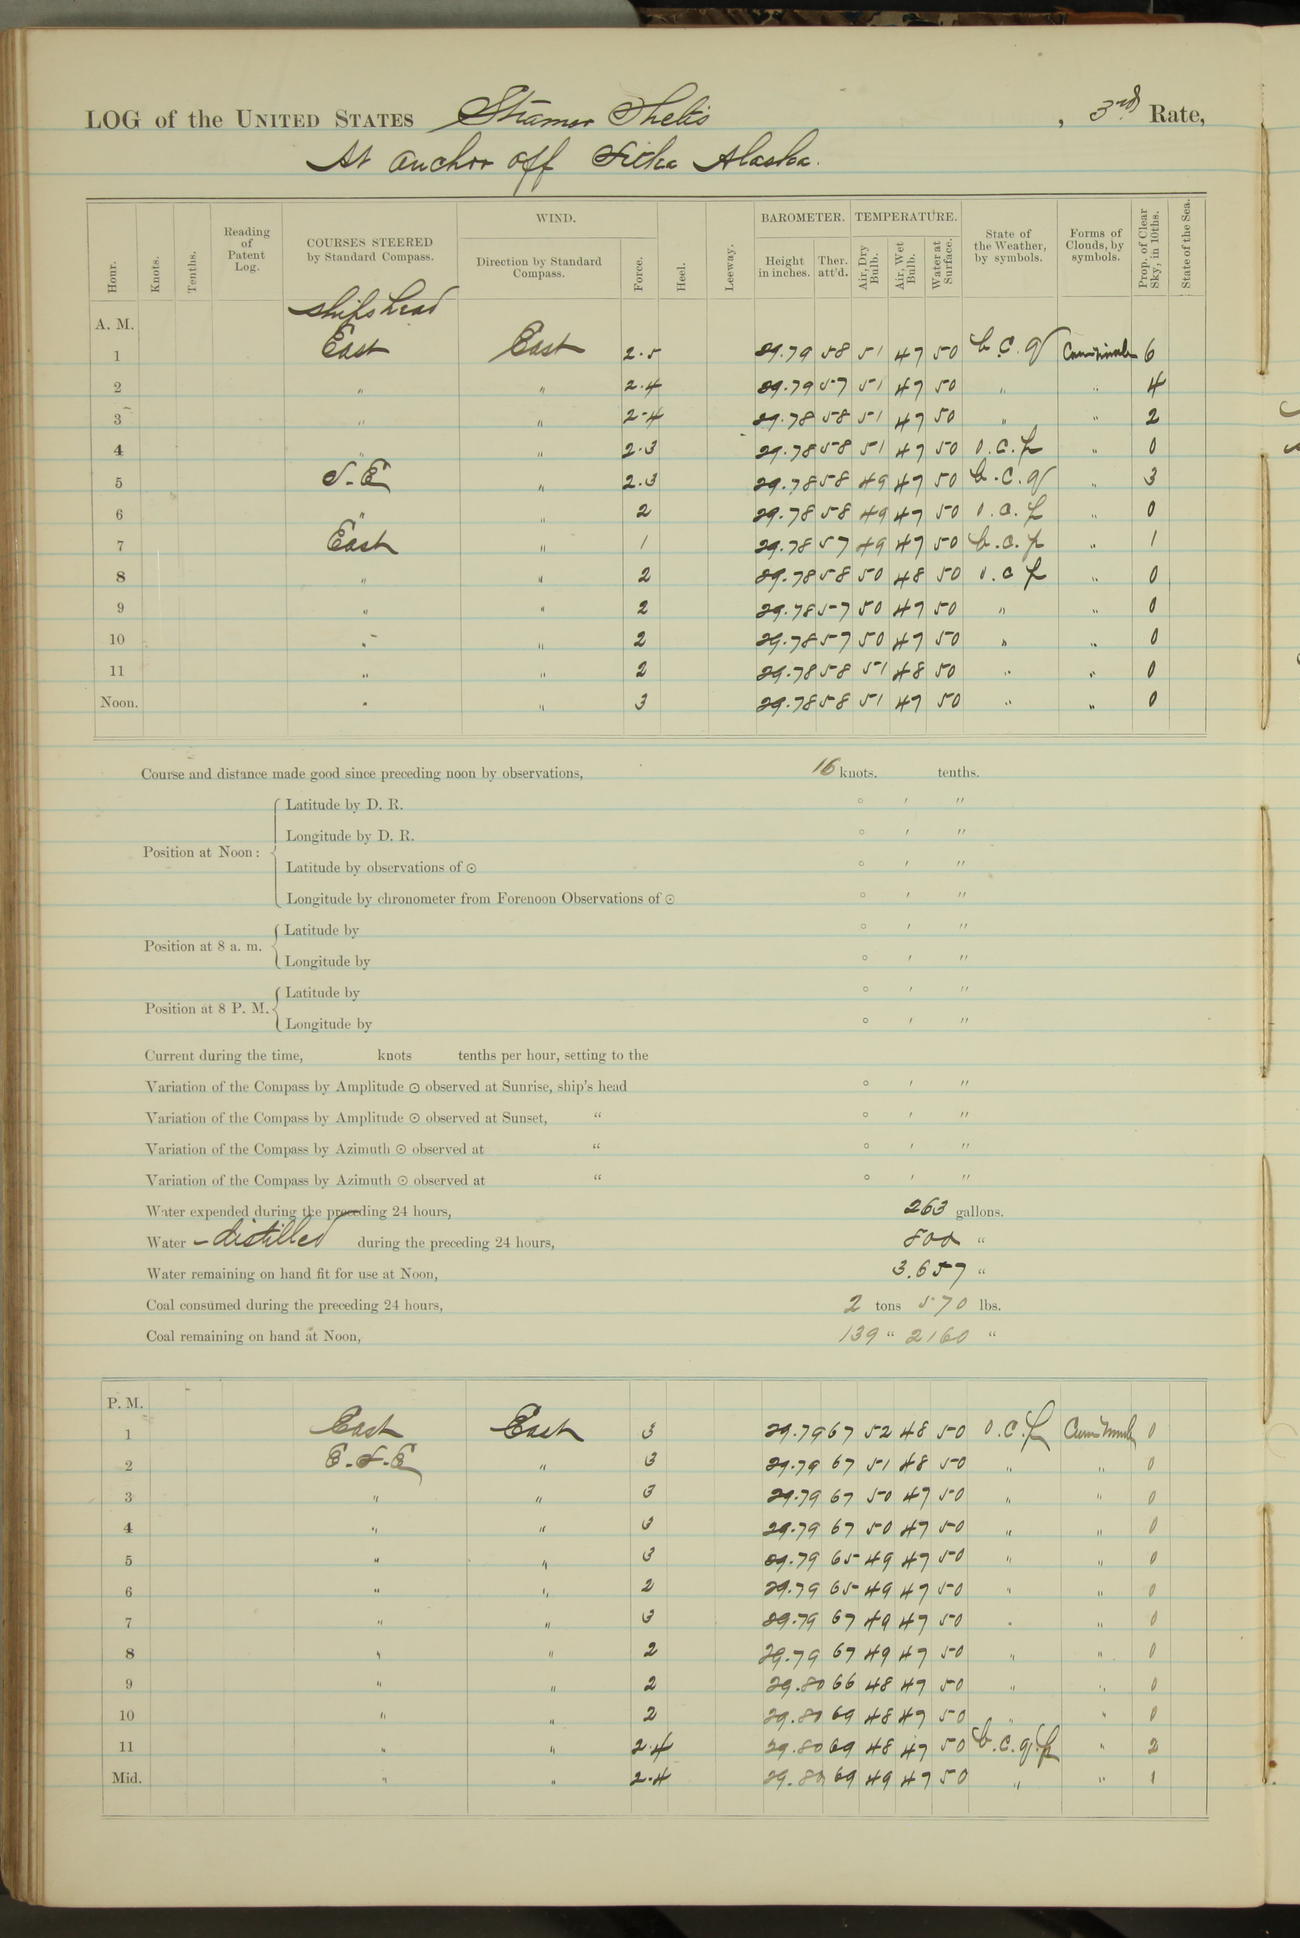 LOG of the UNITED STATES Steamer Thetis, 3rd Rate,
At anchor off Sitka Alaska.
Hour. Knots. Tenths. Reading of Patent Log. COURSES STEERED by Standard Compass. WIND. Direction by Standard Compass. Force. Heel. Leeway. BAROMETER. Height in inches. Ther. att'd. TEMPERATURE. Air, Dry Bulb. Air, Wet Bulb. Water at Surface. State of the Weather, by symbols. Forms of Clouds, by symbols. Prop. of Clear Sky, in 10ths. State of the Sea.
A. M. ships head
1 East East 2-5 29.79 58 51 47 50 b.c.q Cum-Nimb 6
2 " " 2-4 29.79 57 51 47 50 " " 4
3 " " 2-4 29.78 58 51 47 50 " " 2
4 " " 2-3 29.78 58 51 47 50 o.c.p " 0
5 S-E " 2-3 29.78 58 49 47 50 b.c.q " 3
6 " " 2 29.78 58 49 47 50 o.c.p " 0
7 East " 1 29.78 57 49 47 50 b.c.p " 1
8 " " 2 29.78 58 50 48 50 o.c.p " 0
9 " " 2 29.78 57 50 47 50 " " 0
10 " " 2 29.78 57 50 47 50 " " 0
11 " " 2 29.78 58 51 48 50 " " 0
Noon. " " 3 29.78 58 51 47 50 " " 0
Course and distance made good since preceding noon by observations, 16 knots. tenths.
Position at Noon: Latitude by D. R. ° ' "
Longitude by D. R. ° ' "
Latitude by observations of ☉ ° ' "
Longitude by chronometer from Forenoon Observations of ☉ ° ' "
Position at 8 a. m. Latitude by ° ' "
Longitude by ° ' "
Position at 8 P. M. Latitude by ° ' "
Longitude by ° ' "
Current during the time, knots tenths per hour, setting to the
Variation of the Compass by Amplitude ☉ observed at Sunrise, ship's head ° ' "
Variation of the Compass by Amplitude ☉ observed at Sunset, " ° ' "
Variation of the Compass by Azimuth ☉ observed at " ° ' "
Variation of the Compass by Azimuth ☉ observed at " ° ' "
Water expended during the preceding 24 hours, 263 gallons.
Water - distilled during the preceding 24 hours, 800 "
Water remaining on hand fit for use at Noon, 3.657 "
Coal consumed during the preceding 24 hours, 2 tons 570 lbs.
Coal remaining on hand at Noon, 139 " 2160 "
P. M.
1 East East 3 29.79 67 52 48 50 o.c.p Cum-Nimb 0
2 E-S-E " 3 29.79 67 51 48 50 " " 0
3 " " 3 29.79 67 50 47 50 " " 0
4 " " 3 29.79 67 50 47 50 " " 0
5 " " 3 29.79 65 49 47 50 " " 0
6 " " 2 29.79 65 49 47 50 " " 0
7 " " 3 29.79 67 49 47 50 " " 0
8 " " 2 29.79 67 49 47 50 " " 0
9 " " 2 29.80 66 48 47 50 " " 0
10 " " 2 29.80 69 48 47 50 " " 0
11 " " 2-4 29.80 69 48 47 50 b.c.q.p " 2
Mid. " " 2-4 29.80 69 49 47 50 " " 1